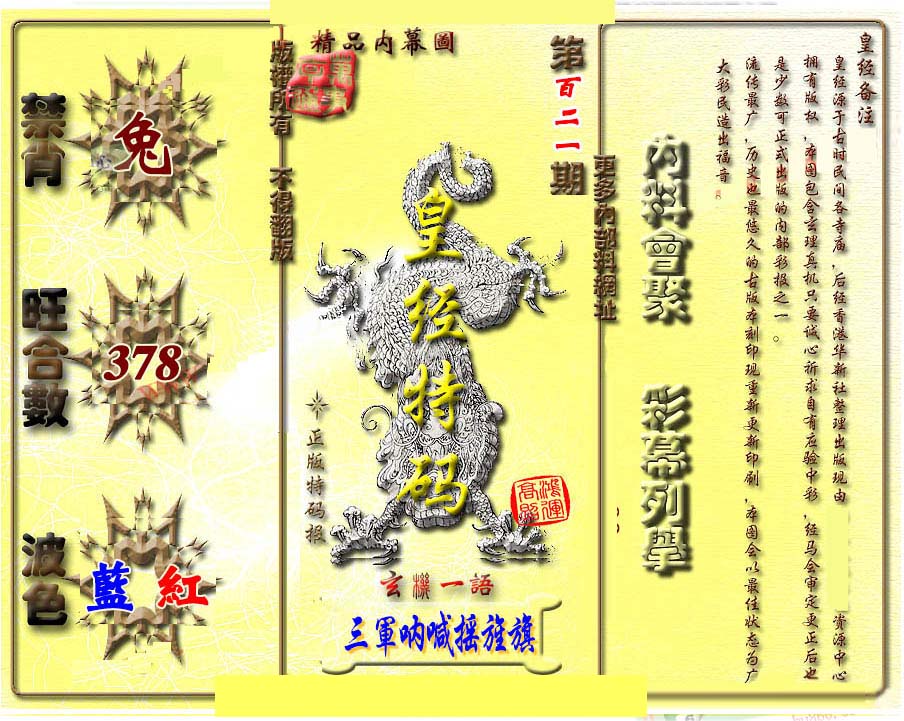 皇经备注
皇经源于古时民间各寺庙,后经香港华新社整理出版现由 资源中心
拥有版权,本图包含玄理真机只要诚心祈求自有应验中彩,经马会审定更正后也
是少数可正式出版的内部彩报之一。
流传最广,历史也最悠久的古版本刻印现重新更新印刷,本图会以最佳状态为广
大彩民造出福音
内料會聚 彩幕列舉
更多內部料網址
第百二一期
精品内幕圖
版權所有 不得翻版
皇经特码
正版特码报
鴻運高照
玄機一語
三軍吶喊搖旌旗
禁肖
兔
旺合數
378
波色
藍 紅